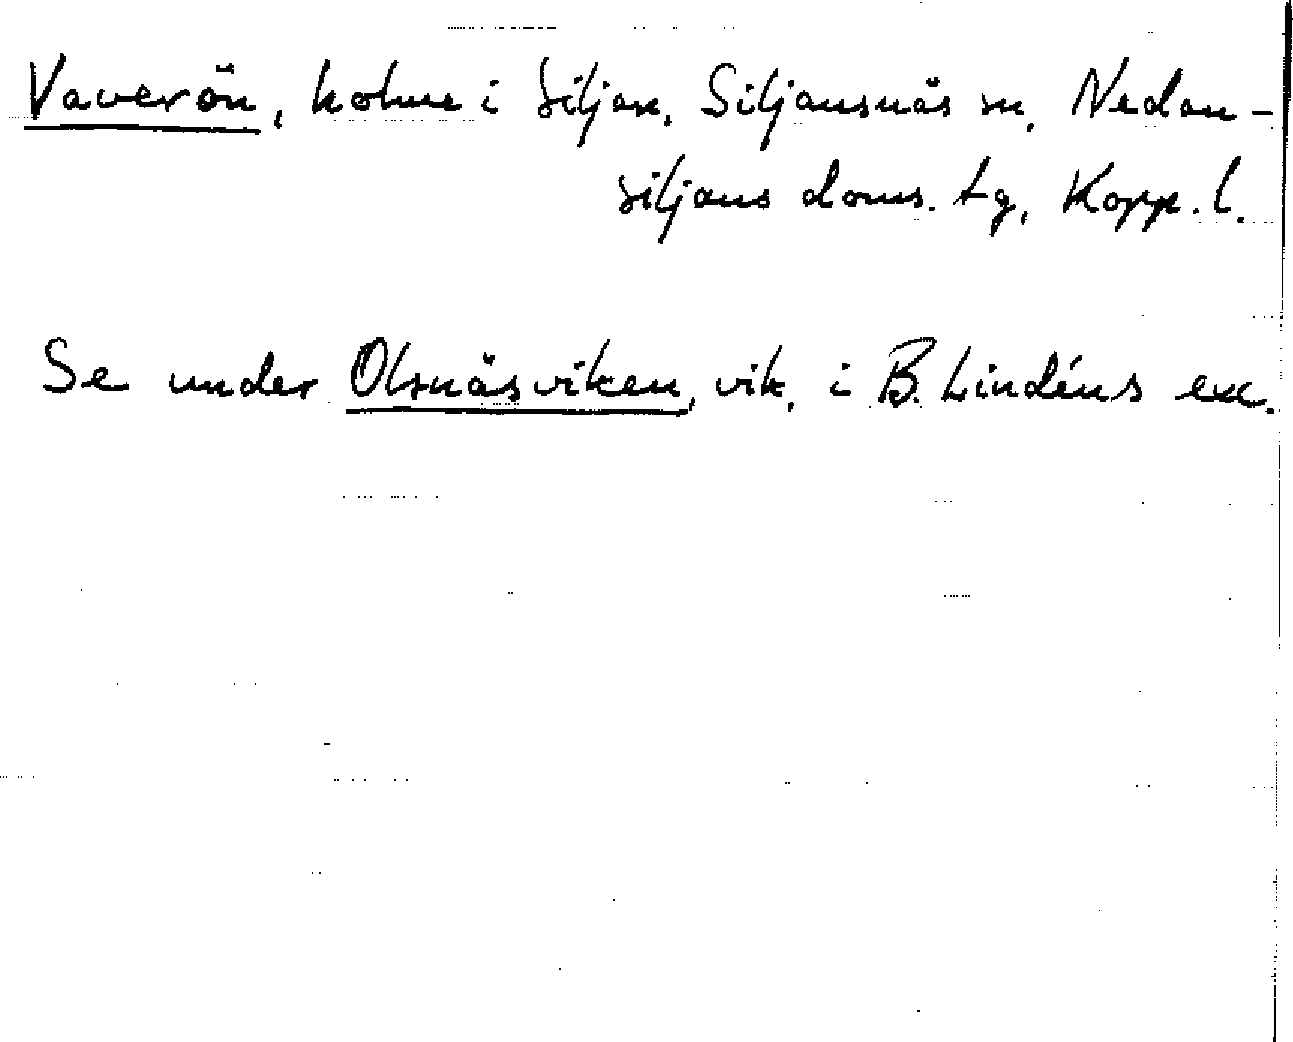 Vaverön, holme i Siljan, Siljansnäs sn, Nedan-
siljans doms. tg, Kopp. l.
Se under Olsnäsviken, vik, i B. Lindéns exc.